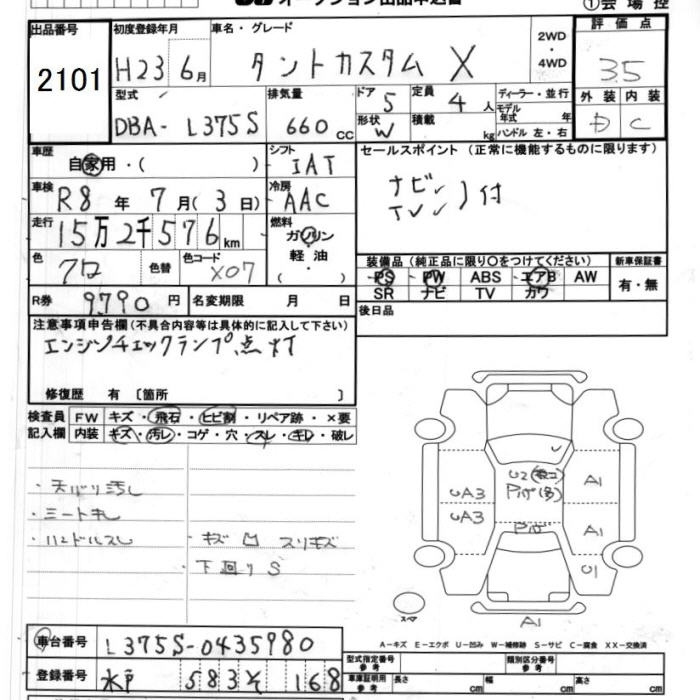 オークション出品申込書
①会場控
出品番号 2101
初度登録年月 H23 6月
車名・グレード タントカスタム X
2WD・4WD
評価点 35
型式 DBA- L375S
排気量 660 CC
ドア 5
定員 4 人
形状 W
積載 kg
ディーラー・並行
モデル年式 年
ハンドル 左・右
外装 内装
D C
車歴 自家用・( )
シフト IAT
セールスポイント (正常に機能するものに限ります)
ナビ
TV
付
車検 R8 年 7月(3日)
冷房 AAC
走行 15万2千576km
燃料 ガソリン・軽油・( )
色 クロ 色替
色コード X07
装備品 (純正品に限り○をつけてください)
新車保証書
PS PW ABS エアB AW
SR ナビ TV カワ
有・無
R券 9790 円
名変期限 月 日
後日品
注意事項申告欄 (不具合内容等は具体的に記入して下さい)
エンジンチェックランプ点灯
修復歴 有 〔箇所 〕
検査員 FW キズ・飛石・ヒビ割・リペア跡・×要
記入欄 内装 キズ・汚れ・コゲ・穴・スレ・キレ・破レ
・天バリ汚し
・シートキレ
・ハンドルスレ
・キズ 凹 スリキズ
・下回りS
U2
UA3
UA3
A1
A1
U1
A1
スペア
A-キズ E-エクボ U-凹み W-補修跡 S-サビ C-腐食 XX-交換済
車台番号 L375S-0435980
登録番号 水戸 583 そ 168
型式指定番号 参考
類別区分番号 参考
車庫証明用 参考 長さ cm 幅 cm 高さ cm